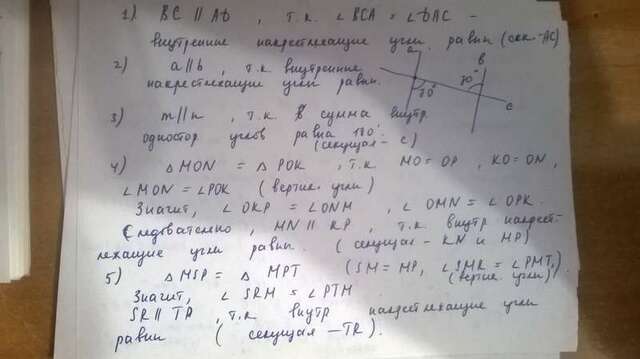 1) BC || AD , т.к. ∠BCA = ∠DAC –
внутренние накрестлежащие углы равны (сек.-AC)
2) a||b , т.к внутренние
накрестлежащие углы равны.
a
B
70°
70°
c
3) m||n , т.к. сумма внутр.
одностор углов равна 180°
(секущая – c)
4) △MON = △POK , т.к MO=OP , KO=ON,
∠MON = ∠POK (вертик. углы)
Значит, ∠OKP = ∠ONM , ∠OMN = ∠OPK.
Следовательно, MN || KP , т.к. внутр накрест-
лежащие углы равны. (секущая – KN и MP)
5) △MSP = △MPT (SM = MP, ∠SMR = ∠PMT,)
(вертик. углы)
Значит, ∠SRM = ∠PTM
SR || TP , т.к внутр накрестлежащие углы
равны (секущая – TR).